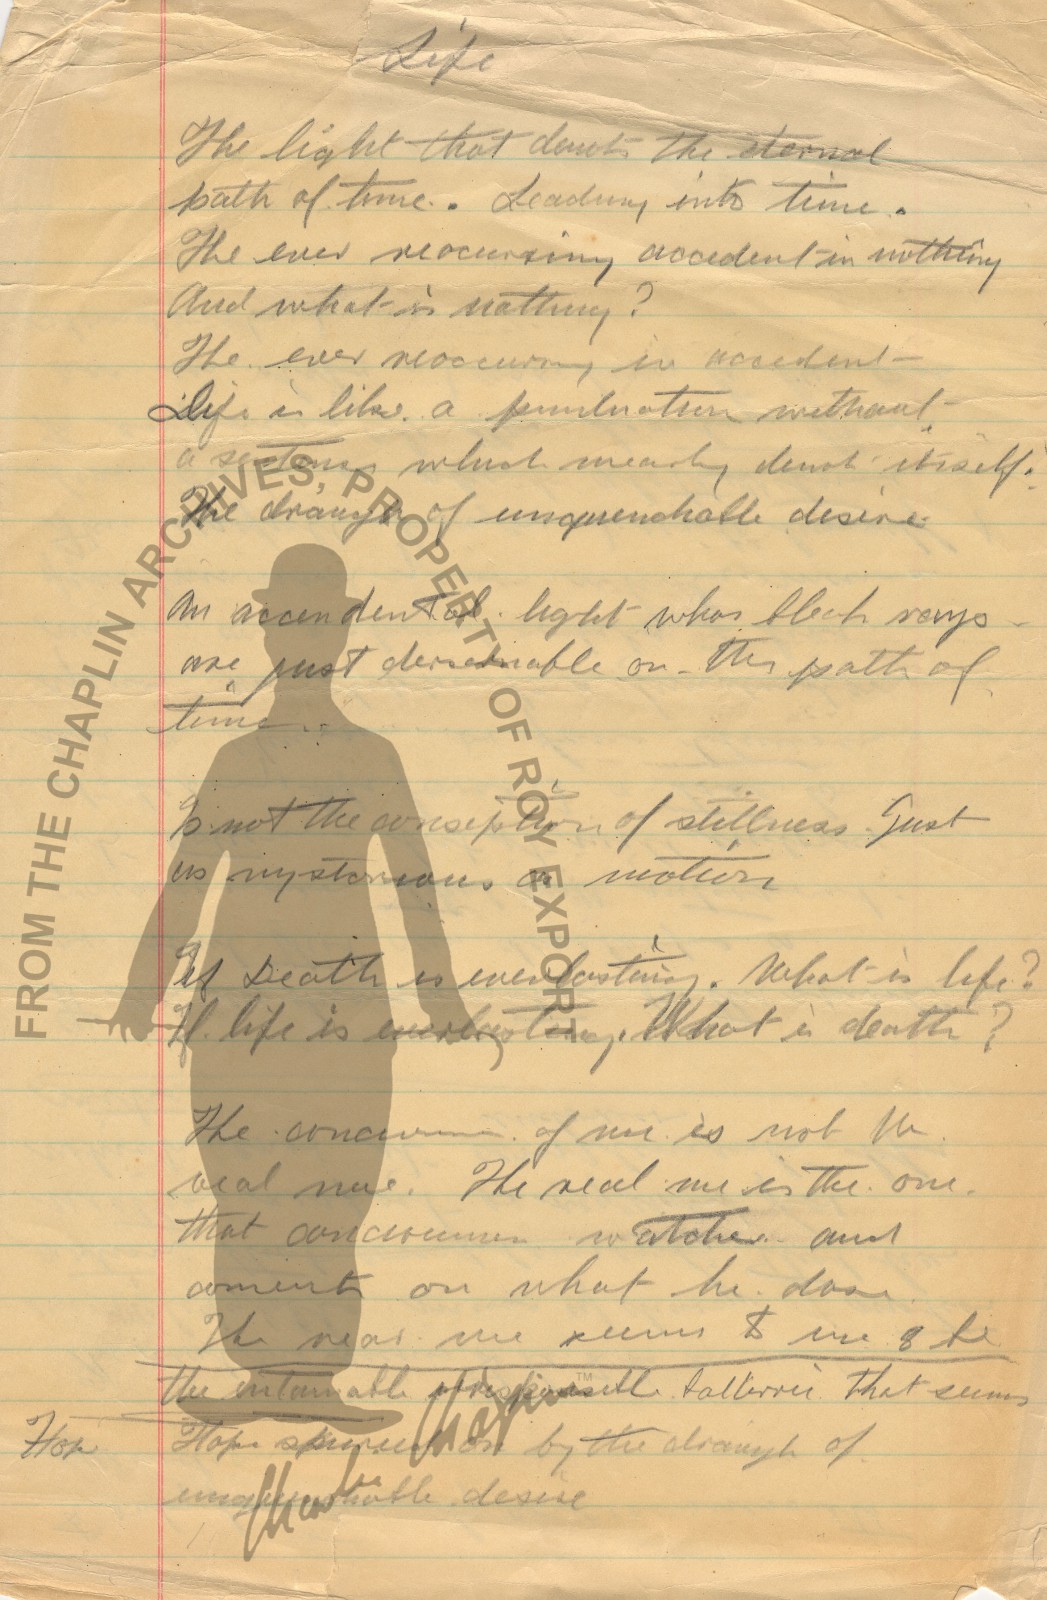 Life
The light that denots the eternal
path of time. Leading into time.
The ever reoccurring accedent in nothing
And what is nothing?
The ever reoccuring in accedent
Life is like a puntuation without
a sentence which mearly denots itself.
The draugh of unquenchable desire
An accendental light whos black rays
are just dersernable on the path of
time.
Is not the conseption of stillness just
as mysterious as motion
If Death is everlasting. What is life?
If life is everlasting. What is death?
The of me is not the
real me. The real me is the one
that watches and
coments on what he dose
The real me seems to me to be
the that seems
Hope Hope spurred on by the draugh of
unquenchable desire
Charlie Chaplin
FROM THE CHAPLIN ARCHIVES, PROPERTY OF ROY EXPORT
TM